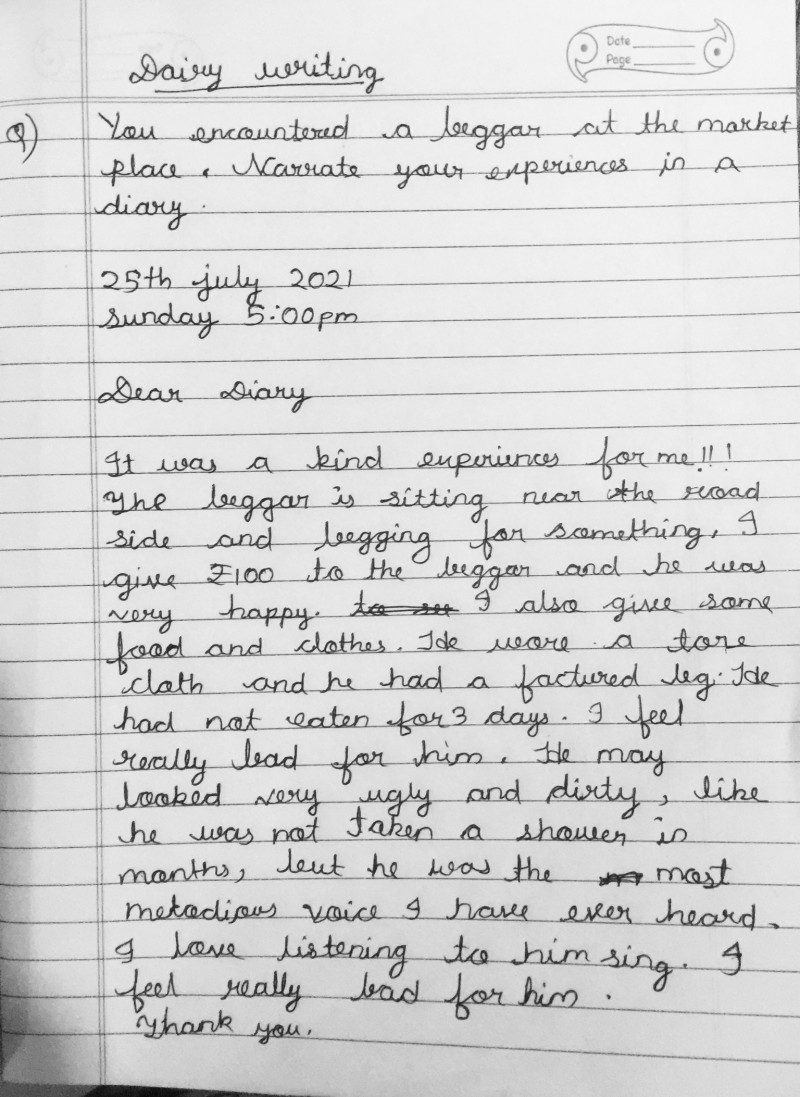 Date
Page
Dairy writing
Q) You encountered a beggar at the market
place. Narrate your experiences in a
diary.
25th july 2021
sunday 5:00pm
Dear Diary
It was a kind experiences for me!!!
The beggar is sitting near the road
side and begging for something, I
give ₹100 to the beggar and he was
very happy. I also give some
food and clothes. He wore a tore
cloth and he had a factured leg. He
had not eaten for 3 days. I feel
really bad for him. He may
looked very ugly and dirty, like
he was not taken a shower in
months, but he was the most
melodious voice I have ever heard.
I love listening to him sing. I
feel really bad for him.
Thank you.